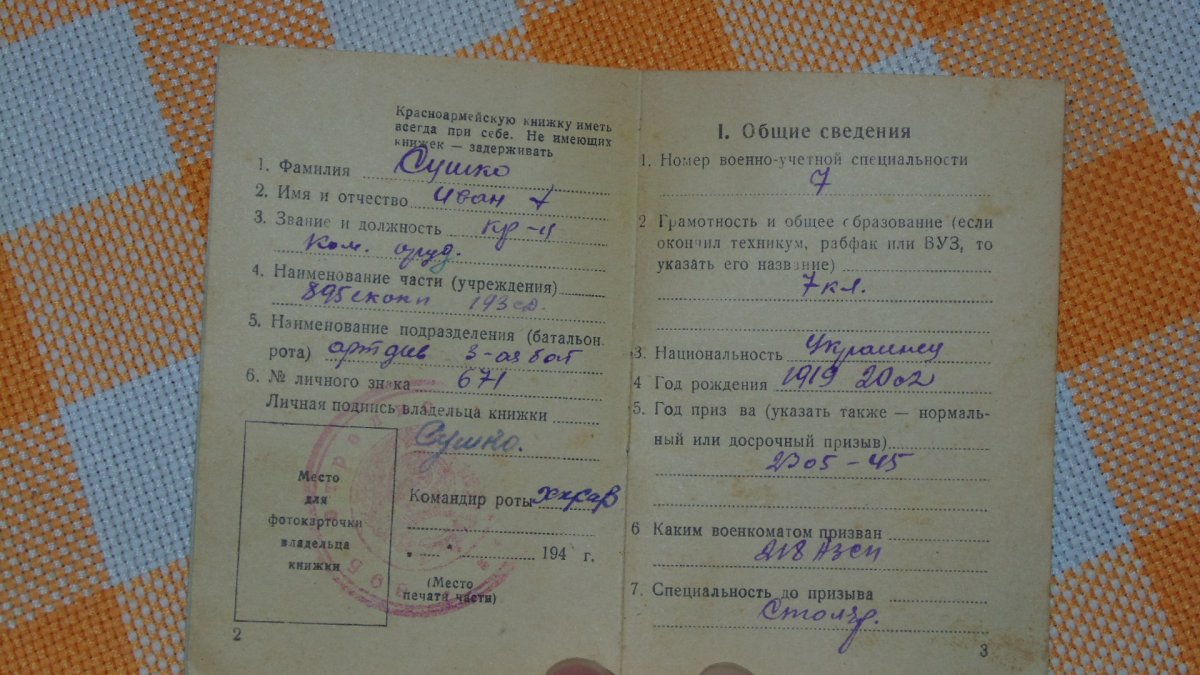 Красноармейскую книжку иметь
всегда при себе. Не имеющих
книжек — задерживать
1. Фамилия Сушко
2. Имя и отчество Иван
3. Звание и должность кр-ц
Ком. оруд.
4. Наименование части (учреждения)
895 193 сд.
5. Наименование подразделения (батальон
рота) артдив 3-ая бат
6. № личного знака 671
Личная подпись владельца книжки
Сушко.
Место
для
фотокарточки
владельца
книжки
Командир роты
„ “ 194 г.
(Место
печати части)
895
2
I. Общие сведения
1. Номер военно-учетной специальности
7
2 Грамотность и общее образование (если
окончил техникум, рабфак или ВУЗ, то
указать его название)
7 кл.
3. Национальность Украинец
4 Год рождения 1919
5. Год приз ва (указать также — нормаль-
ный или досрочный призыв)
6 Каким военкоматом призван
218 АЗСП
7. Специальность до призыва
Столяр.
3